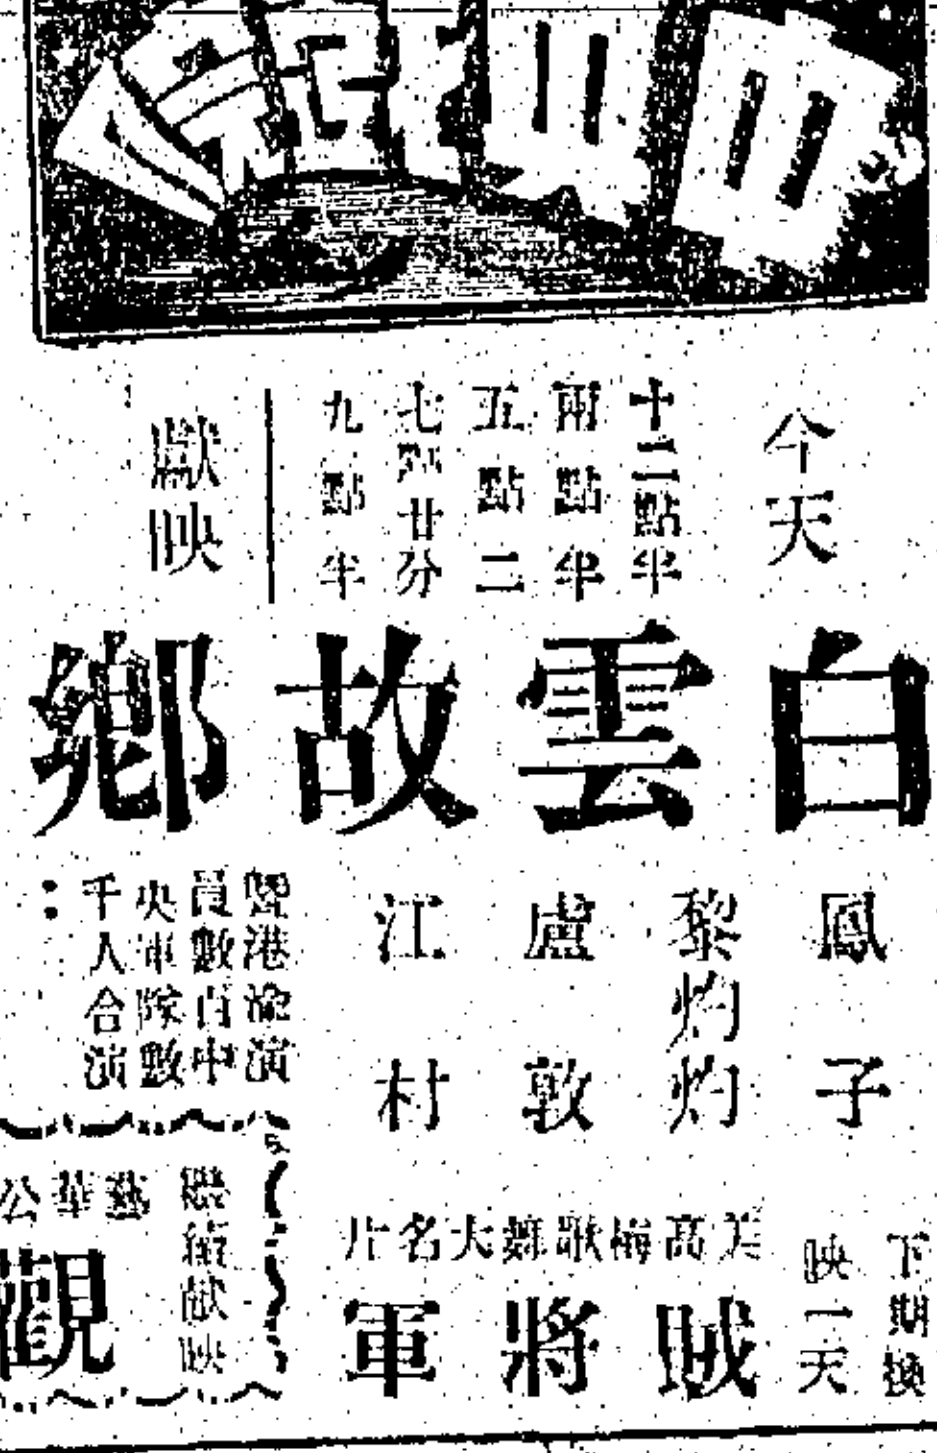 今天
十二點半
兩點半
五點二
七點廿分
九點半
獻映
白雲故鄉
鳳子
黎灼灼
盧敦
江村
暨港渝演
員數百中
央軍隊數
千人合演
下期換
映一天
美高梅歌舞大名片
賊將軍
繼續獻映
藝華公
觀